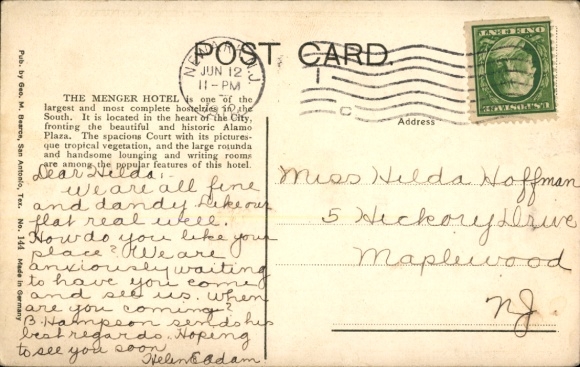 POST CARD.
NEWARK, N.J.
JUN 12
11-PM
THE MENGER HOTEL is one of the
largest and most complete hostelries in the
South. It is located in the heart of the City,
fronting the beautiful and historic Alamo
Plaza. The spacious Court with its pictures-
que tropical vegetation, and the large rounda
and handsome lounging and writing rooms
are among the popular features of this hotel.
Pub. by Geo. M. Bearce, San Antonio, Tex. No. 144 Made in Germany
Dear Hilda,-
We are all fine
and dandy. Like our
flat real well.
How do you like your
place? We are
anxiously waiting
to have you come
and see us. When
are you coming?
B. Hampson sends his
best regards. Hoping
to see you soon
Helen E Adam
Address
Miss Hilda Hoffman
5 Hickory Drive
Maplewood
N.J.
C